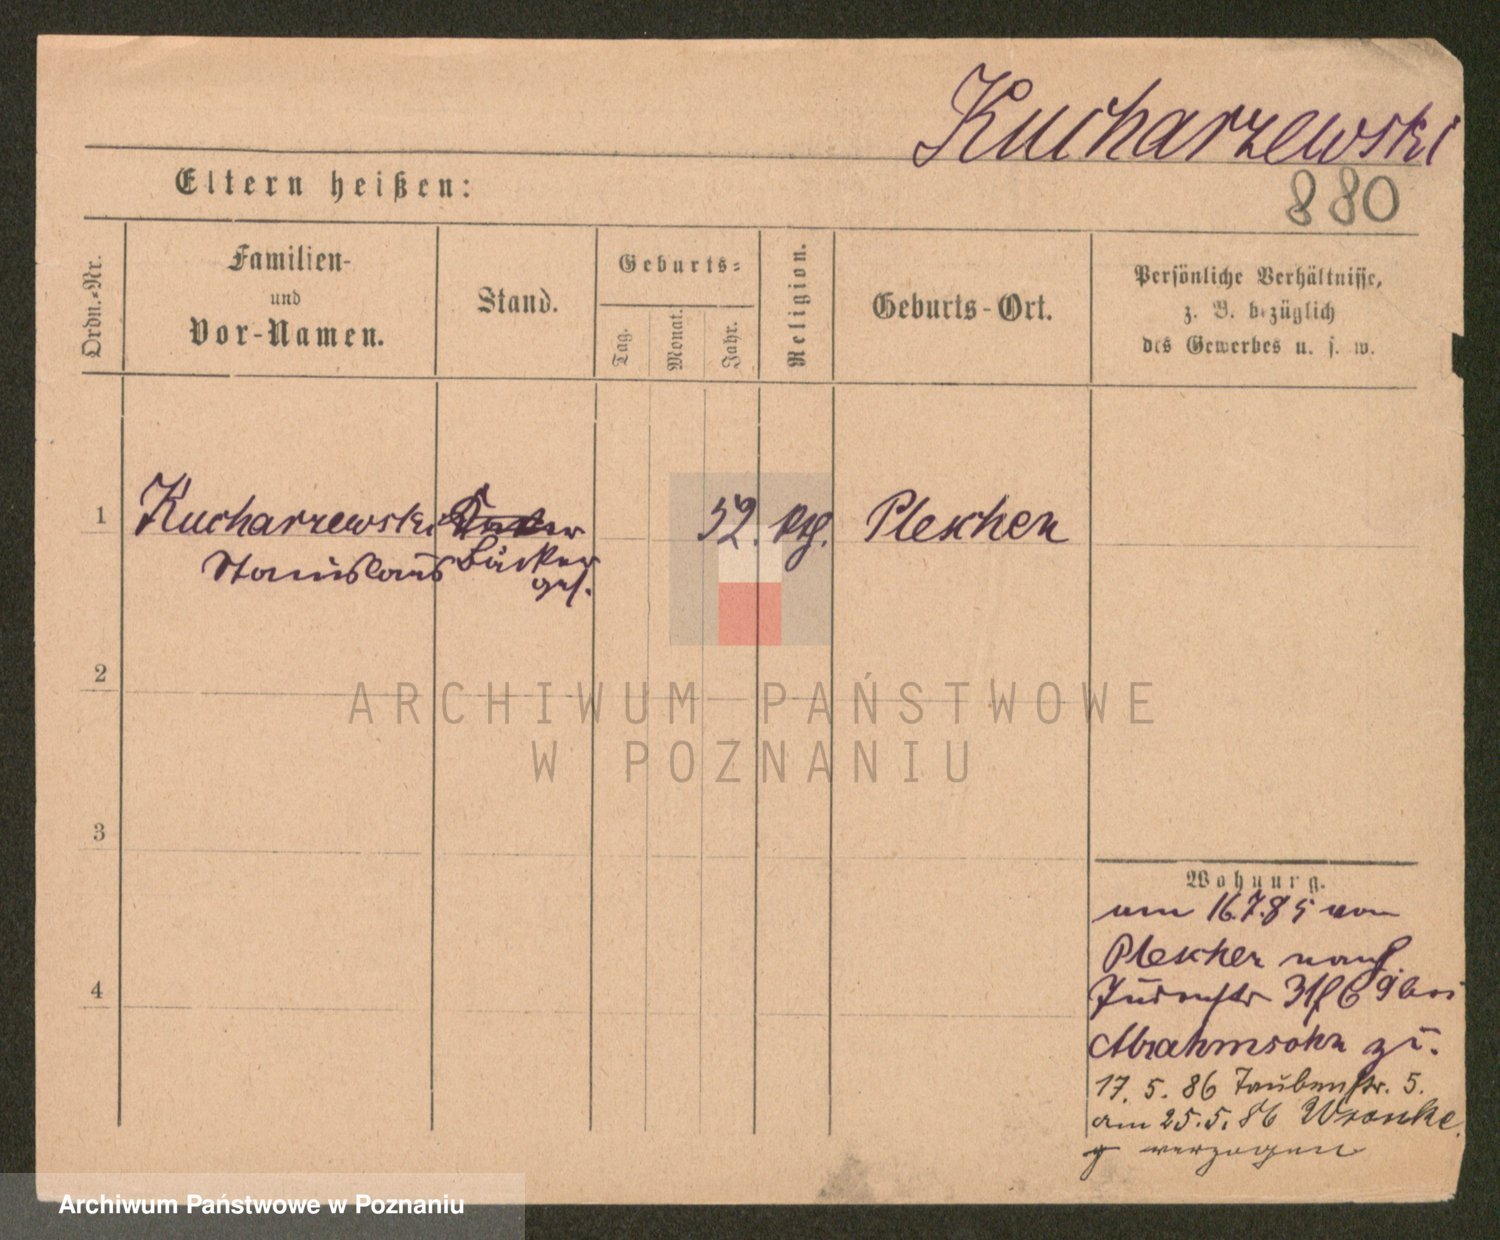 Kucharzewski
880
Eltern heißen:
Ordn.-Nr.
Familien-
und
Vor-Namen.
Stand.
Geburts-
Tag.
Monat.
Jahr.
Religion.
Geburts-Ort.
Persönliche Verhältnisse,
z. B. bezüglich
des Gewerbes u. s. w.
1
Kucharzewski
Stanislaus
Bäcker
ges.
52.
ktḥ.
Pleschen
2
3
4
ARCHIWUM PAŃSTWOWE
W POZNANIU
Wohnung.
am 16.7.85 von
Pleschen nach
Judenstr 31 bei
Abrahmsohn zu.
17. 5. 86 Taubenstr. 5.
am 25.5.86 Wronke
verzogen
Archiwum Państwowe w Poznaniu